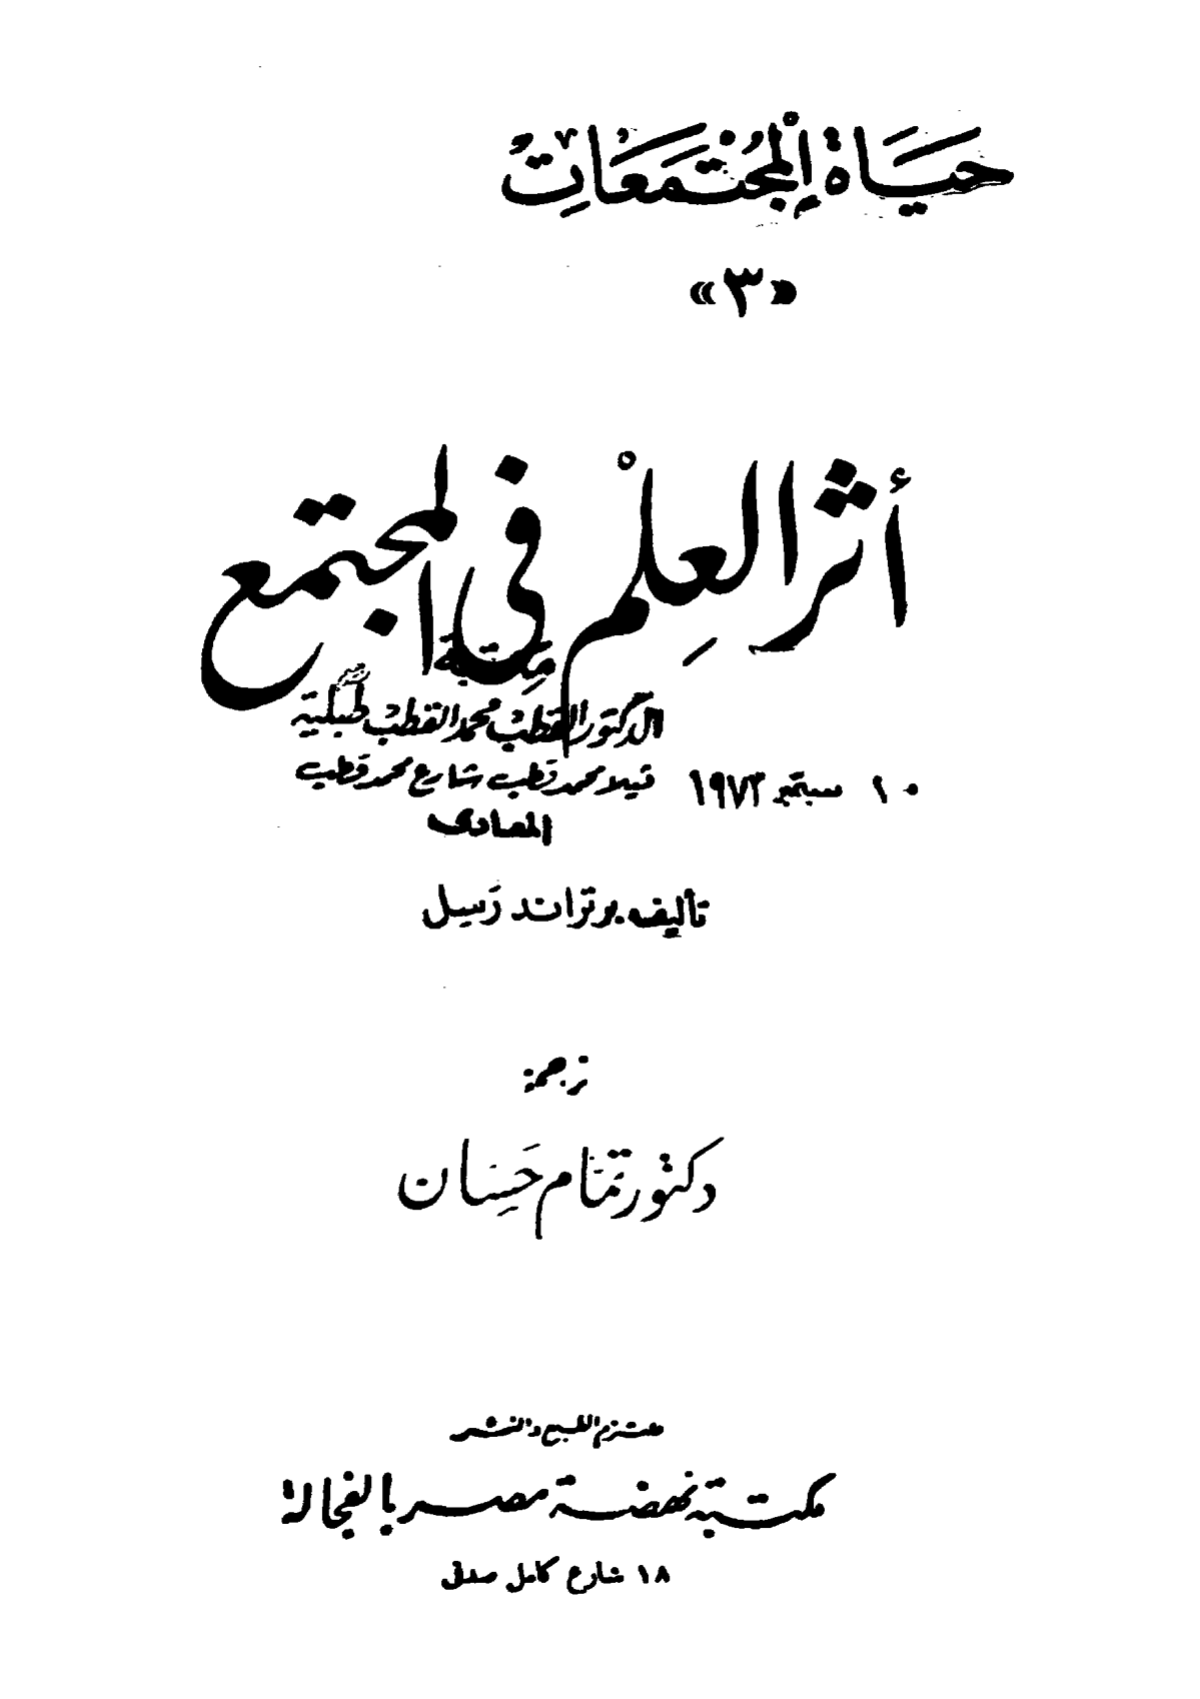 حَيَاة اِلْمُجْتَمَعَاتِ
«٣»
أثر العِلْم في المجتمع
مكتبة
الدكتور القطب محمد القطب طبلية
ڤيلا محمد قطب شارع محمد قطب
١٠ سبتمبر ١٩٧٢
المعادى
تأليف برتراند رَسِل
ترجمة
دكتور تمَّام حَسِّان
ملتزم الطبع والنشر
مكتبة نهضة مصر بالفجالة
١٨ شارع كامل صدقى